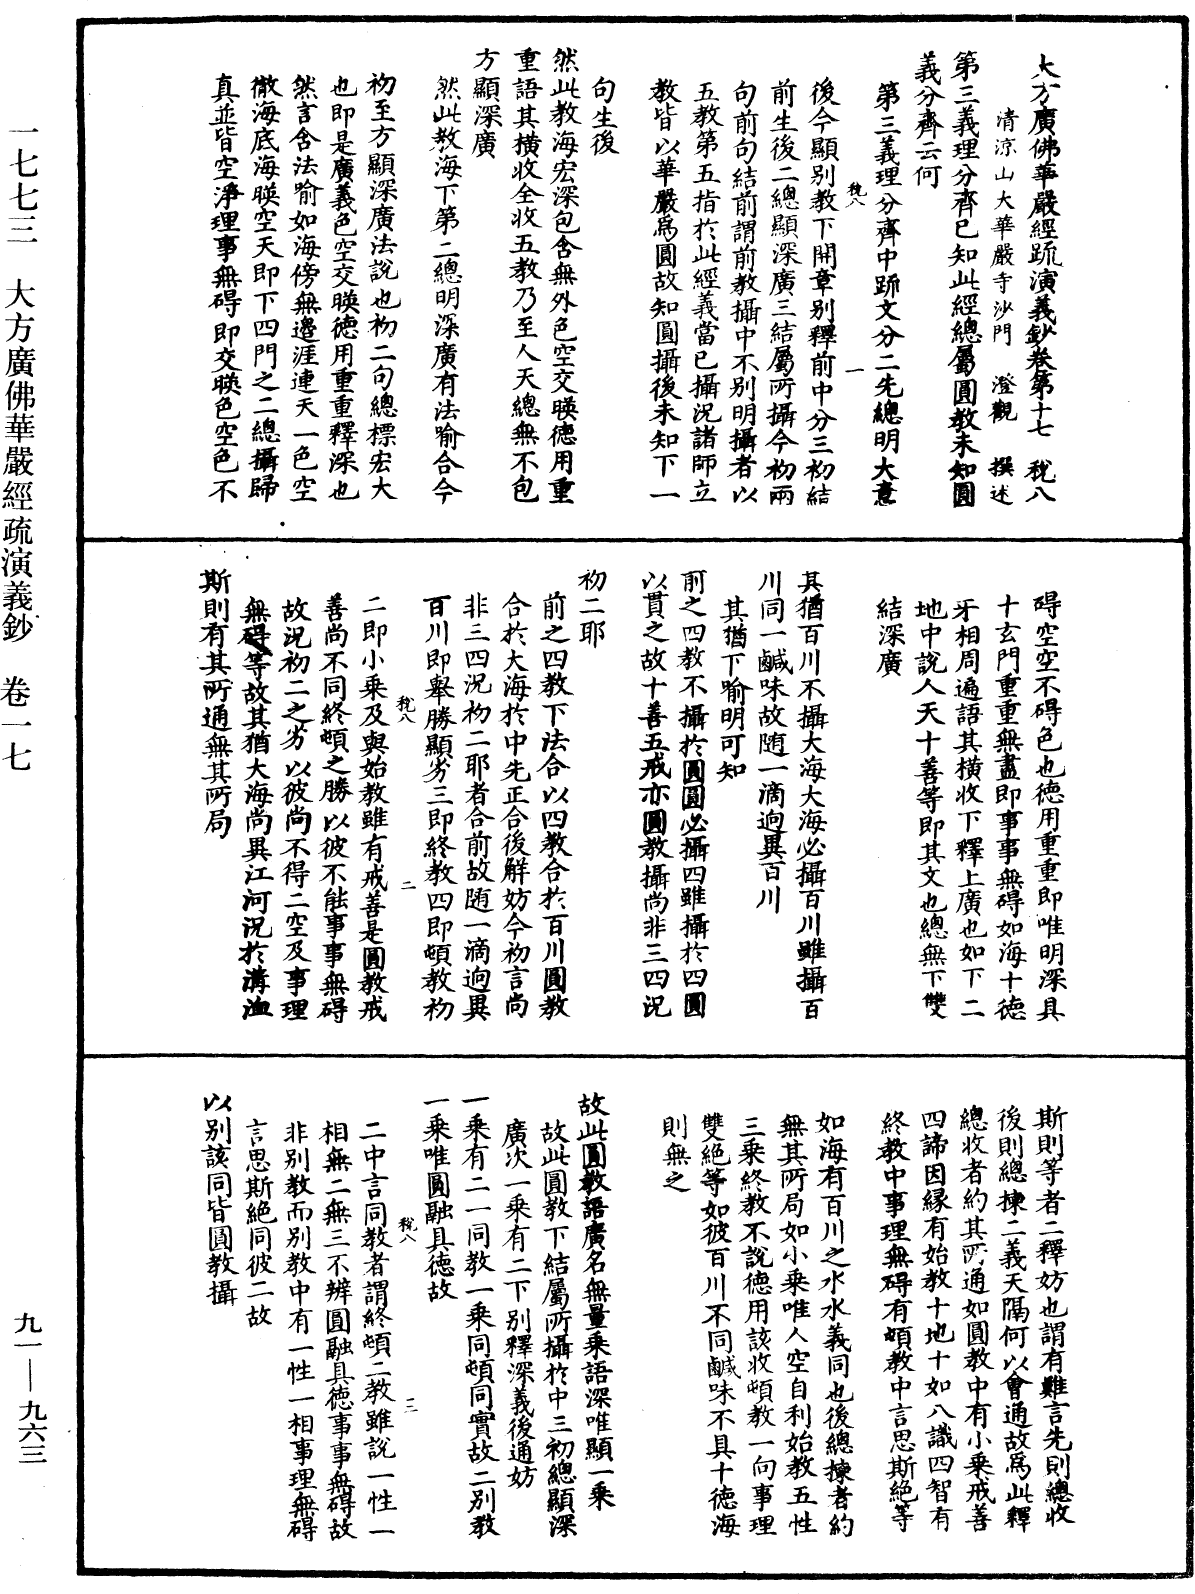 大方廣佛華嚴經疏演義鈔卷第十七　稅八
清涼山大華嚴寺沙門　澄觀　撰述
第三義理分齊已知此經總屬圓教未知圓
義分齊云何
第三義理分齊中疏文分二先總明大意
稅八　一
後今顯別教下開章別釋前中分三初結
前生後二總顯深廣三結屬所攝今初兩
句前句結前謂前教攝中不別明攝者以
五教第五指於此經義當已攝況諸師立
教皆以華嚴為圓故知圓攝後未知下一
句生後
然此教海宏深包含無外色空交暎德用重
重語其橫收全收五教乃至人天總無不包
方顯深廣
然此教海下第二總明深廣有法喻合今
初至方顯深廣法說也初二句總標宏大
也即是廣義色空交暎德用重重釋深也
然言含法喻如海傍無邊涯連天一色空
徹海底海暎空天即下四門之二總攝歸
真並皆空淨理事無碍即交暎色空色不
碍空空不碍色也德用重重即唯明深具
十玄門重重無盡即事事無碍如海十德
牙相周遍語其橫收下釋上廣也如下二
地中說人天十善等即其文也總無下雙
結深廣
其猶百川不攝大海大海必攝百川雖攝百
川同一鹹味故随一滴逈異百川
其猶下喻明可知
前之四教不攝於圓圓必攝四雖攝於四圓
以貫之故十善五戒亦圓教攝尚非三四況
初二耶
前之四教下法合以四教合於百川圓教
合於大海於中先正合後解妨今初言尚
非三四況初二耶者合前故随一滴逈異
百川即舉勝顯劣三即終教四即頓教初
稅八　二
二即小乘及與始教雖有戒善是圓教戒
善尚不同終頓之勝以彼不能事事無碍
故況初二之劣以彼尚不得二空及事理
無碍等故其猶大海尚異江河況於溝洫
斯則有其所通無其所局
斯則等者二釋妨也謂有難言先則總收
後則總揀二義天隔何以會通故為此釋
總收者約其所通如圓教中有小乘戒善
四諦因緣有始教十地十如八識四智有
終教中事理無碍有頓教中言思斯絕等
如海有百川之水水義同也後總揀者約
無其所局如小乘唯人空自利始教五性
三乘終教不說德用該收頓教一向事理
雙絕等如彼百川不同鹹味不具十德海
則無之
故此圓教語廣名無量乘語深唯顯一乘
故此圓教下結屬所攝於中三初總顯深
廣次一乘有二下別釋深義後通妨
一乘有二一同教一乘同頓同實故二別教
一乘唯圓融具德故
稅八　三
二中言同教者謂終頓二教雖說一性一
相無二無三不辨圓融具德事事無碍故
非別教而別教中有一性一相事理無碍
言思斯絕同彼二故
以別該同皆圓教攝
一七七三　大方廣佛華嚴經疏演義鈔　卷一七
九一—九六三